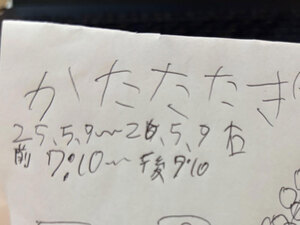 かたたたき
25、5、9〜26、5、9
前 7:10〜 後 9:10